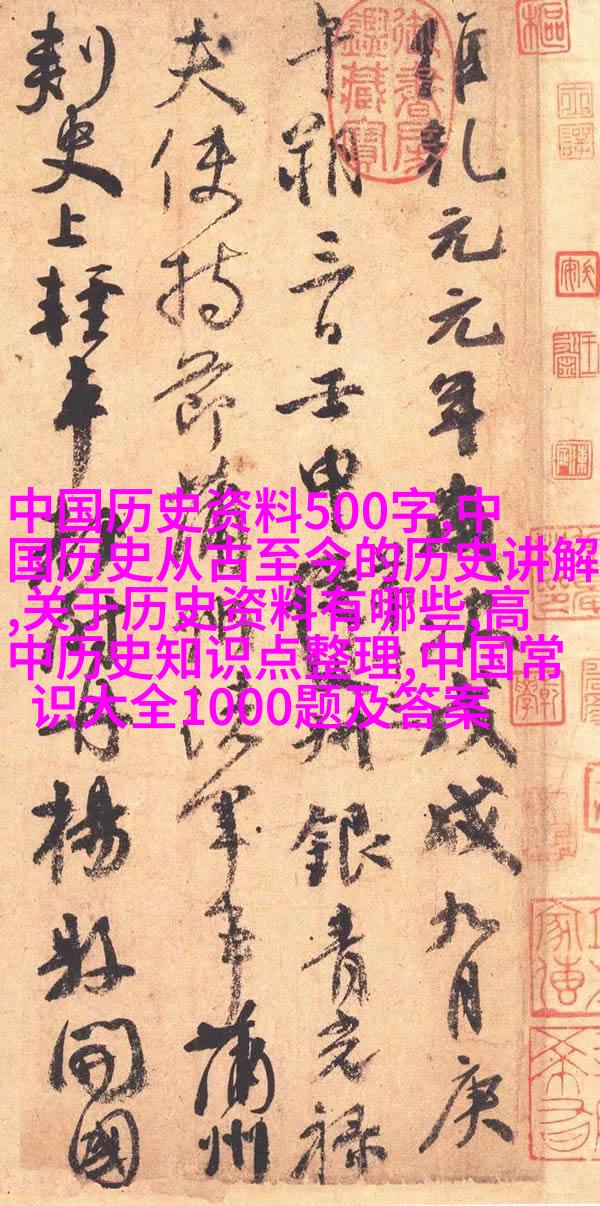 維乾元元年歲次戊戌九月庚
午朔三日壬申叔銀青光祿
夫使持節蒲州諸軍事蒲州
刺史上輕車都尉丹楊縣開國
御書房鑑藏寶
中国历史资料500字,中
国历史从古至今的历史讲解
,关于历史资料有哪些,高
中历史知识点整理,中国常
识大全1000题及答案